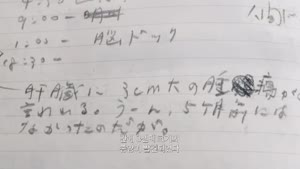 9:00 -
1:00 - 脳ドック
:30 -
肝臓に3cm大の腫瘍が
言われる。うーん、5ケ月前には
なかったのだが。